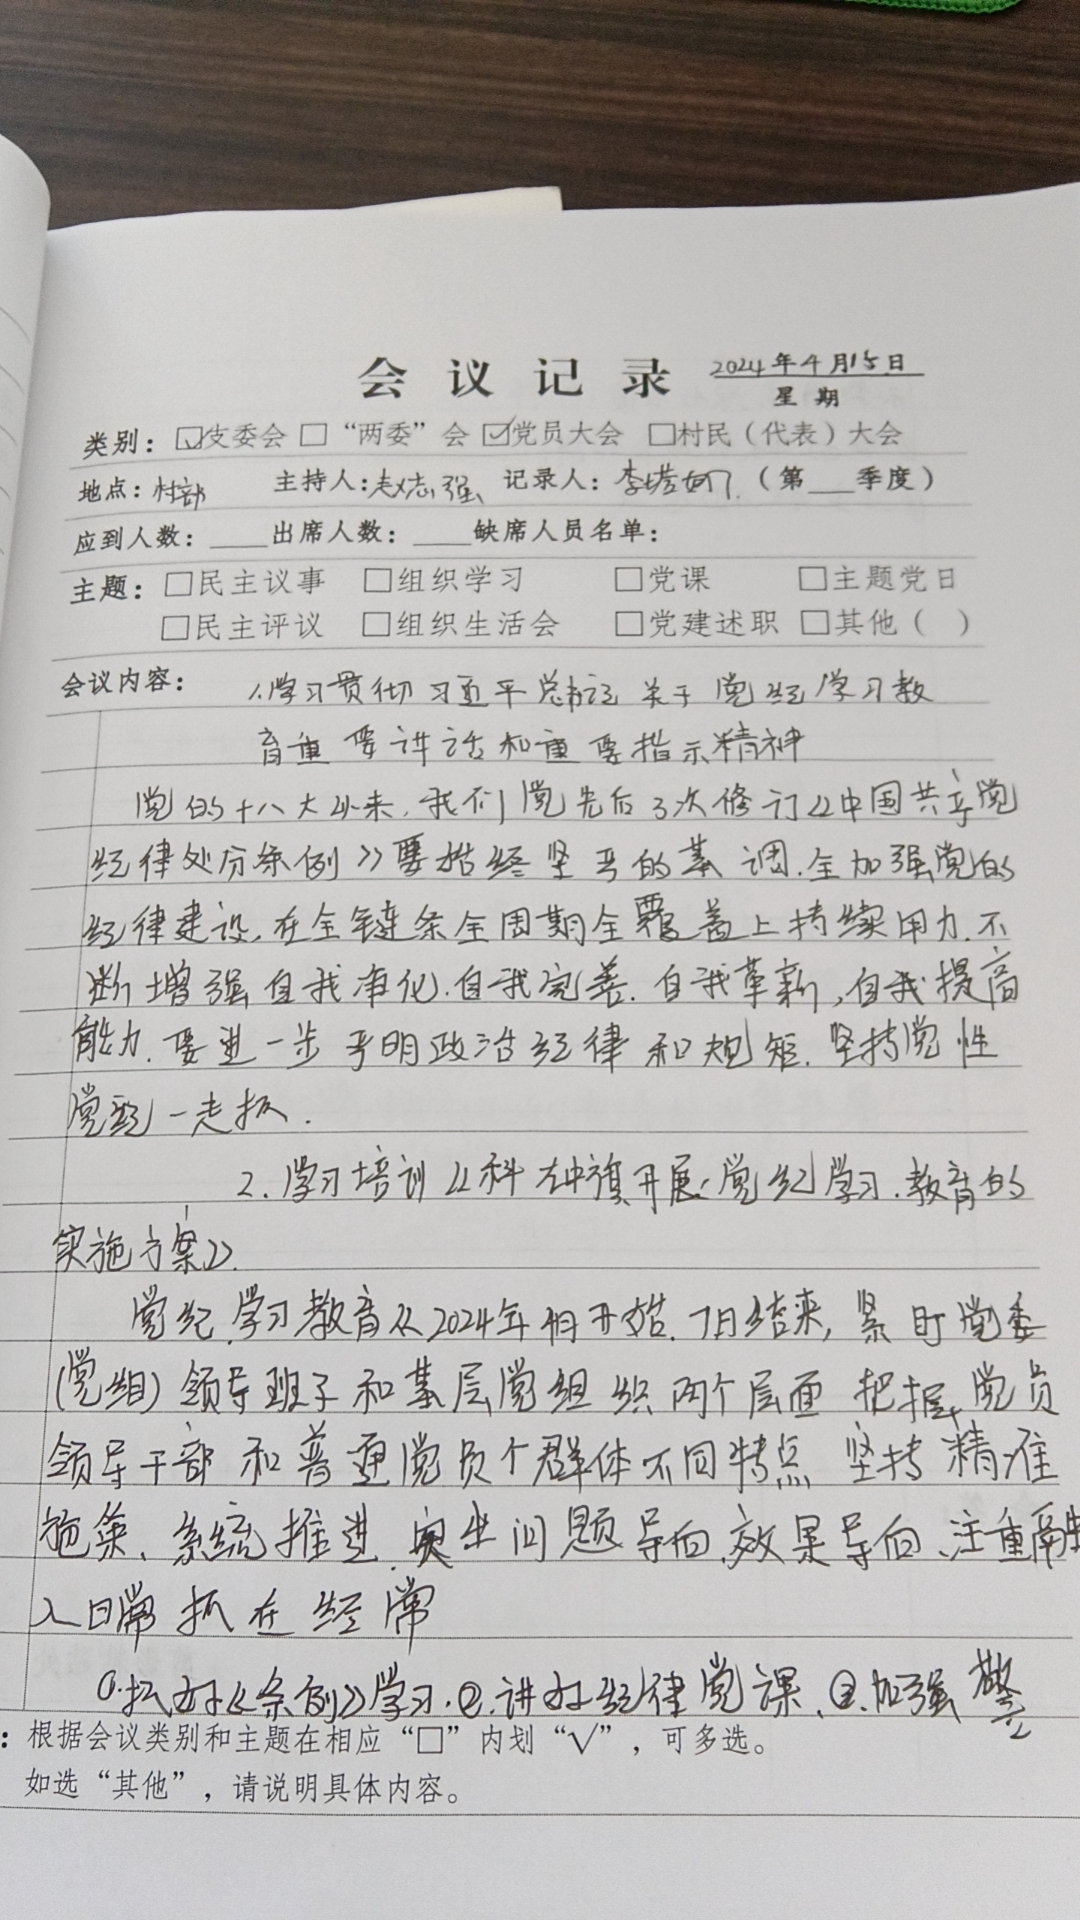 会议记录 2024年4月15日
星期
类别：☑支委会 □“两委”会 ☑党员大会 □村民（代表）大会
地点：村部 主持人：赵志强 记录人：李塔娜 （第___季度）
应到人数：____出席人数：____缺席人员名单：
主题：□民主议事 □组织学习 □党课 □主题党日
□民主评议 □组织生活会 □党建述职 □其他（ ）
会议内容： 1.学习贯彻习近平总书记关于党纪学习教
育重要讲话和重要指示精神
党的十八大以来，我们党先后3次修订《中国共产党
纪律处分条例》要始终坚严的基调.全加强党的
纪律建设，在全链条全周期全覆盖上持续用力.不
断增强自我净化.自我完善.自我革新，自我提高
能力.要进一步严明政治纪律和规矩.坚持党性
党 一 抓.
2.学习培训《科左中旗开展党纪学习.教育的
实施方案》.
党纪学习教育从2024年4月开始.7月结束，紧盯党委
(党组)领导班子和基层党组织两个层面 把握党员
领导干部和普通党员个群体不同特点 坚持精准
施策、系统推进.突出问题导向.效果导向、注重融
入日常 抓在经常
①.抓好《条例》学习.②.讲好纪律党课.③.加强警
：根据会议类别和主题在相应“□”内划“√”，可多选。
如选“其他”，请说明具体内容。